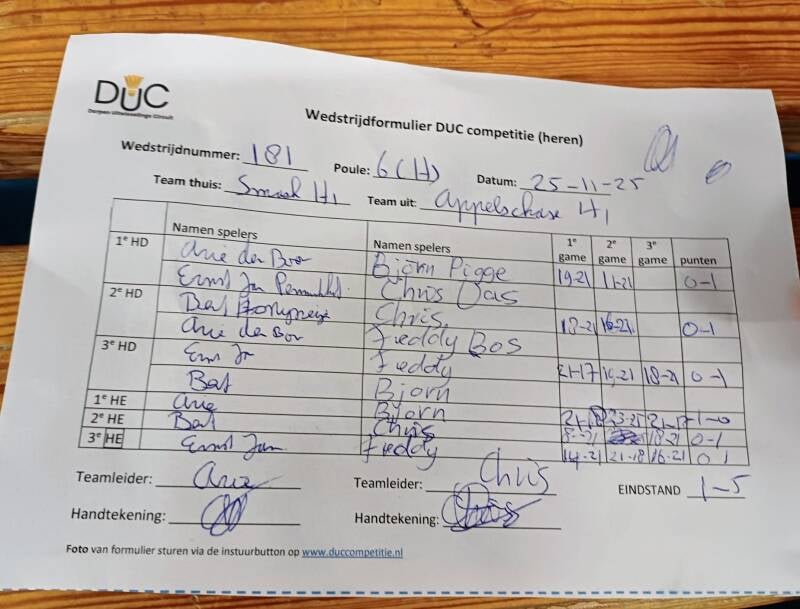 DUC
Dorpen Uitwisselings Circuit
Wedstrijdformulier DUC competitie (heren)
Wedstrijdnummer: 181 Poule: 6 (H) Datum: 25-11-25
Team thuis: Smash H1 Team uit: Appelschase H1
Namen spelers Namen spelers 1e game 2e game 3e game punten
1e HD Arie den Boer Björn Pigge 19-21 11-21 0-1
Ernst Jan Chris Das
2e HD Bat Chris 18-21 16-21 0-1
Arie den Boer Freddy Bos
3e HD Ernst Jan Freddy 21-17 -21 18-21 0-1
Bat Bjorn
1e HE Arie Bjorn 21-18 23-25 21-17 1-0
2e HE Bat Chris -21 18-21 0-1
3e HE Ernst Jan Freddy 14-21 21-18 16-21 0-1
Teamleider: Arie Teamleider: Chris EINDSTAND 1-5
Handtekening: Handtekening: Chris
Foto van formulier sturen via de instuurbutton op www.duccompetitie.nl